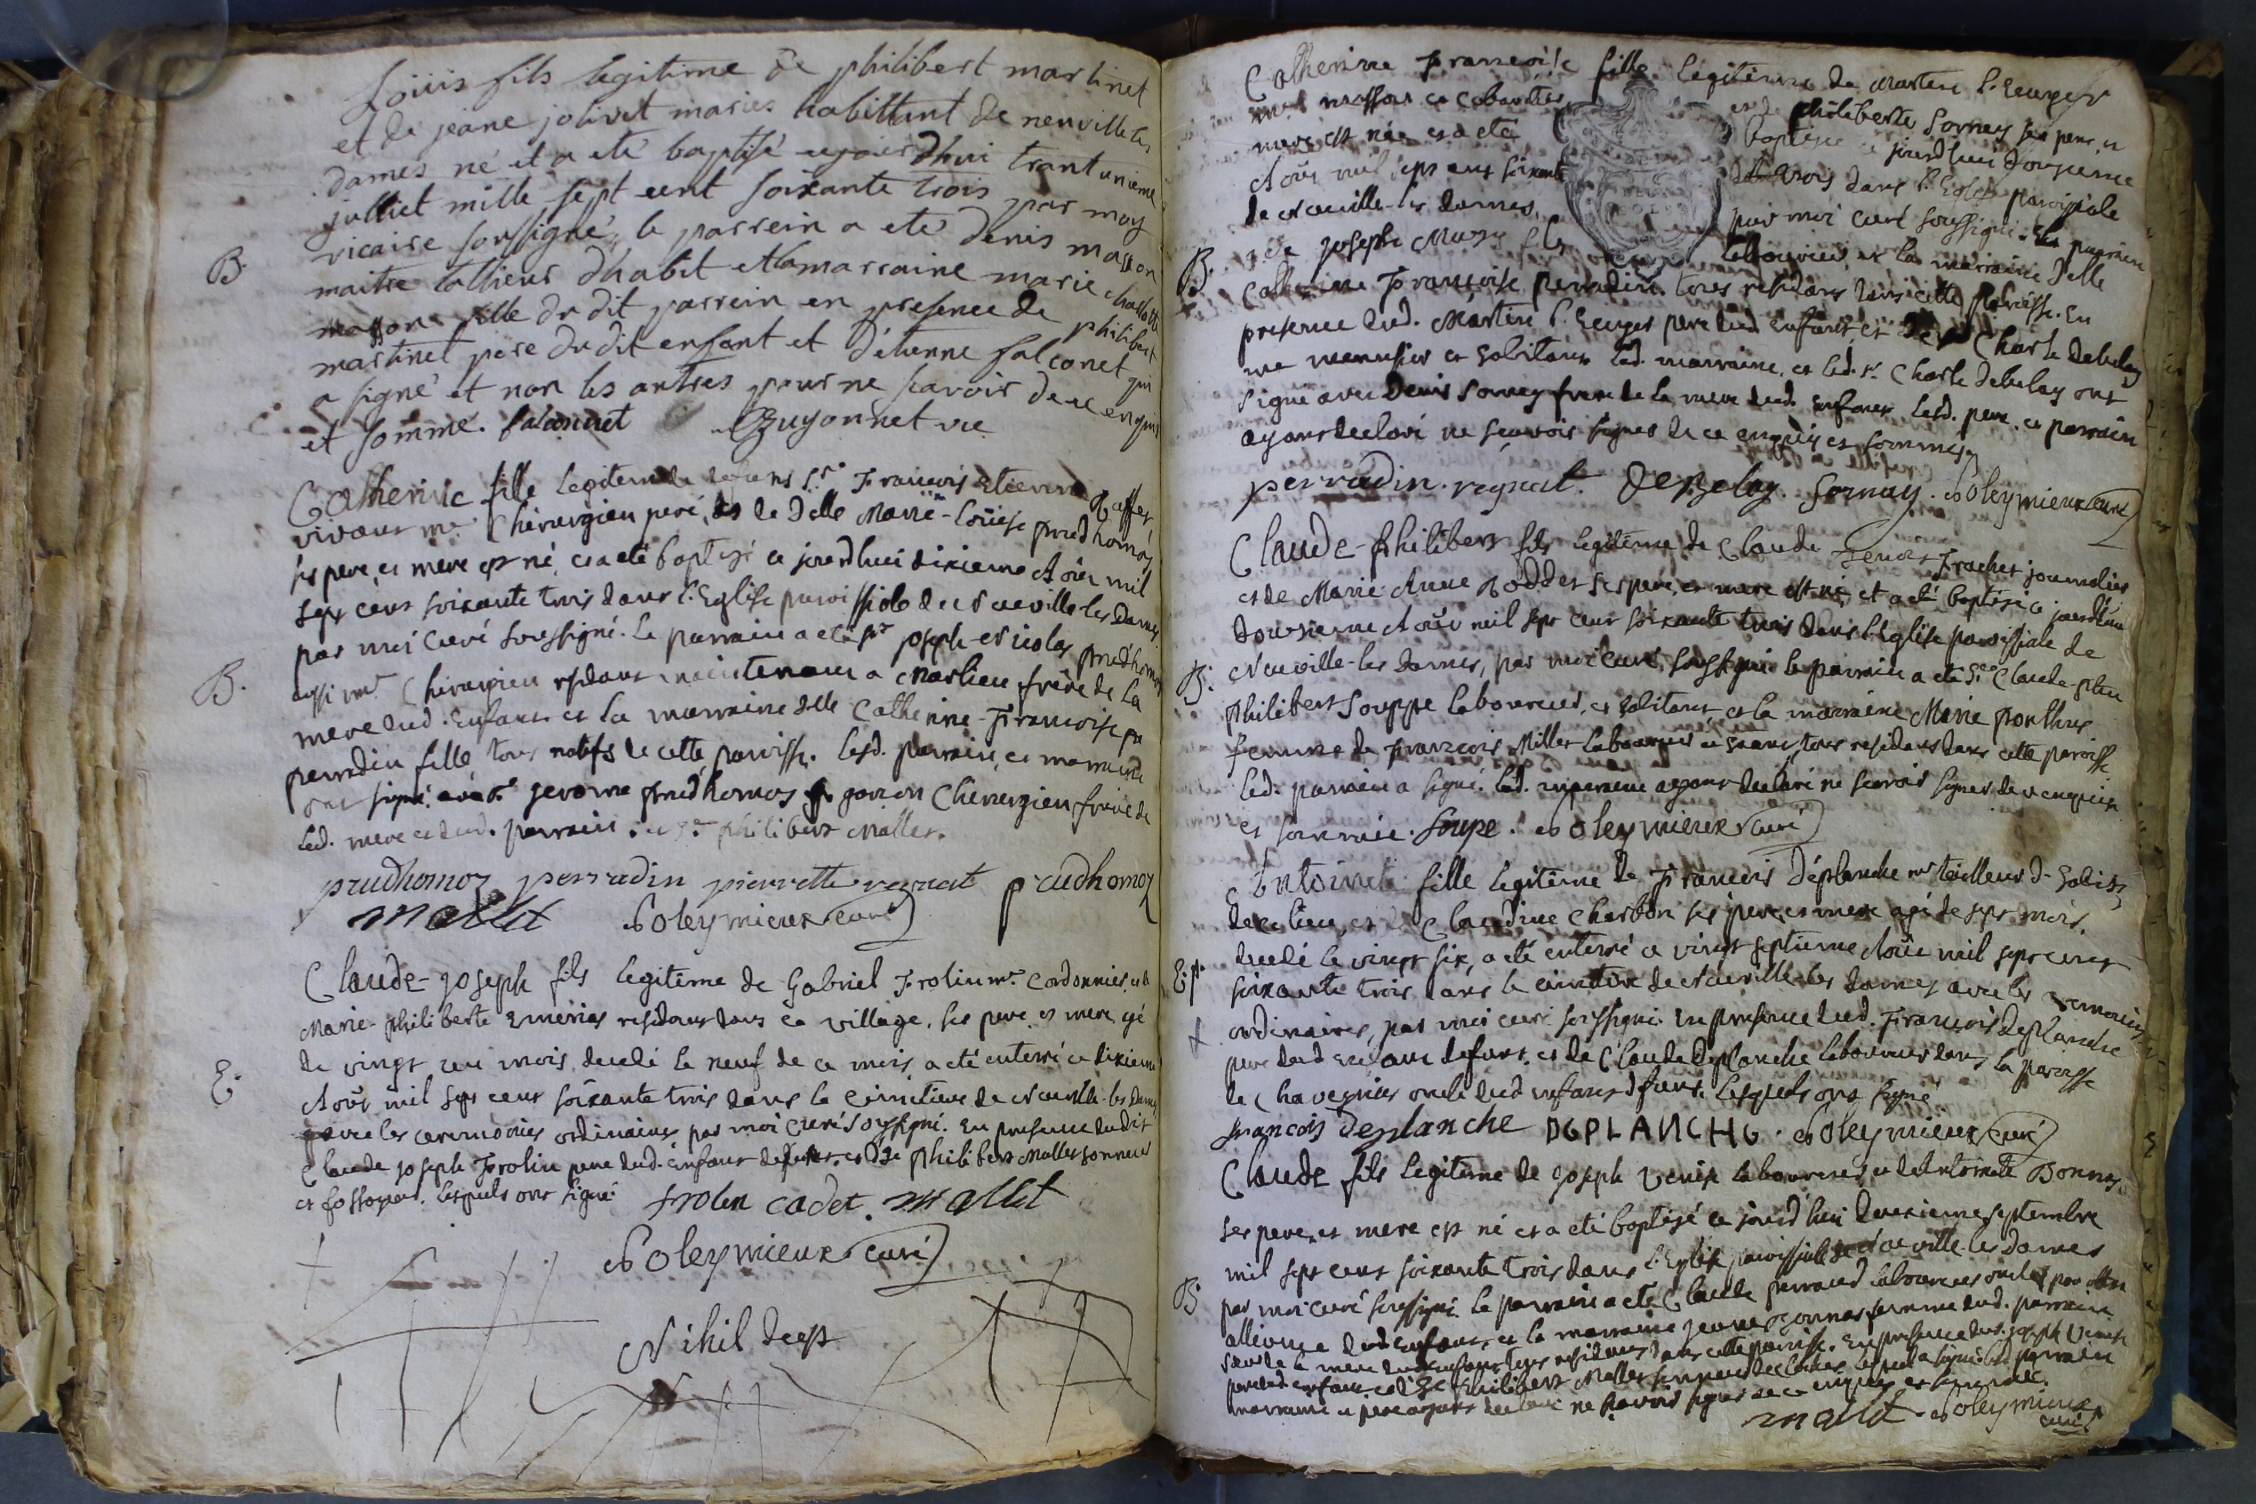 Loüis fils legitime de philibert martinet
et de jeane jolivet mariés habittant de neuville les
dames né et a eté baptisé aujourdhui trantunieme
julliet mille sept cent soixante trois par moy
vicaire soussigné, le parrein a eté denis masson
B.
maitre tallieur dhabit et la marraine marie charlotte
masson fille du dit parrein en presence de philibert
martinet pere du dit enfant et d'étienne falconet qui
a signé et non les autres pour ne scavoir de ce enquis
et sommé. falconnet Guyonnet vic
Catherine fille legitime de S.r François Etienne
vivant m.e Chirurgien peré, et de Delle Marie-Loüise prudhomoz
ses pere, et mere est né, et a eté baptisé ce jourdhui dixieme Aoüt mil
sept cent soixante trois dans l'Eglise paroissiale de Neuville-les Dames
par moi Curé soussigné. Le parrain a eté S.r joseph-Nicolas prudhomoz
B.
aussi m.e Chirurgien residant maintenant a Marlieu frere de la
mere dud. Enfant et la marraine delle Catherine-Francoise
perradin fille tous natifs de cette paroisse. Lesd. parrain, et marraine
ont signé, avec S.r jerome prudhomoz garcon Chirurgien frere de
lad. mere et dud. parrain. et S.r philibert Mallet.
prudhomoz perradin pierrette regnat prudhomoz
mallet Soleymieux curé
Claude-joseph fils legitime de Gabriel Frolin m.e Cordonnier, et de
Marie-philiberte residant dans ce village, ses pere et mere, agé
de vingt un mois, decedé le neuf de ce mois, a eté enterré ce dixieme
E.
Aoüt mil sept cent soixante trois dans le Cimetiere de Neuville-les Dames
avec les ceremonies ordinaires par moi Curé soussigné. En presence dudit
Claude joseph Frolin pere dud. Enfant defunt, et de philibert Mallet sonneur
et fossoyeur. lesquels ont signé frolin cadet. mallet
Soleymieux curé
Nihil deest
Catherine Françoise fille legitime de Martin
m.e masson et et de philiberte Sornay ses pere, et
mere est née et a eté baptisée ce jourdhui douzieme
Aoüt mil sept cent soixante trois dans l'Eglise paroissiale
de Neuville-les dames, par moi curé soussigné. Le parrain
B.
joseph laboureur, et la marraine Delle
Catherine Françoise perradin tous residans dans cette paroisse. En
presence dud. Martin pere dud. enfant, et de Charle debelay
me menusier et lad. marraine, et led. S.r Charle debelay ont
signé avec Denis Sornay frere de la mere dud. enfant, lesd. pere, et parrain
ayant declaré ne sçavoir signer de ce enquis et sommés
perradin. regnat. Debelay. Sornay. Soleymieux curé
Claude-philibert fils legitime de Claude Frachet journalier
et de Marie Anne ses pere, et mere est né, et a eté baptisé ce jourdhui
Douzieme Aoüt mil sept cent soixante trois dans l'Eglise paroissiale de
B.
Neuville-les dames, par moi curé, soussigné le parrain a eté Claude
philibert Souppe laboureur, et et la marraine Marie ponthus
femme de François Millet laboureur tous residans dans cette paroisse
led. parrain a signé. lad. marraine ayant declaré ne scavoir signer de ce enquise
et sommée. Soupe. Soleymieux curé
Antoinette fille legitime de François Déplanche m.e tailleur d-habits
de ce lieu, et de Claudine Charbon ses pere, et mere agé de sept mois.
decedé le vingt six, a eté enterré ce vingt septieme Aoüt mil sept cent
E.
soixante trois dans le cimetiere de Neuville-les dames avec les ceremonies
ordinaires, par moi curé soussigné. En presence dud. François Deplanche
pere dud. enfant defunt, et de Claude Deplanche laboureur dans la paroisse
de Chaveyriat oncle dud. enfant defunt. lesquels ont signé
françois deplanche DGPLANCHG. Soleymieux curé
Claude fils legitime de joseph laboureur, et de Antoinette Bonnat
ses pere, et mere est né et a eté baptisé ce jourdhui deuxieme septembre
mil sept cent soixante trois dans l'Eglise paroissiale de Neuville-les dames
B
par moi curé soussigné. le parrain a eté Claude perraud laboureur oncle par
alliance dud. enfant, et la marraine jeanne bonnat femme dud. parrain
soeur de la mere dud. enfant tous residans dans cette paroisse. En presence dud. joseph
pere dud. enfant, et de philibert Mallet sonneur des cloches lequel a signé led. parrain
marraine et pere ayant declaré ne scavoir signer de ce enquis et sommés.
mallet. Soleymieux
curé